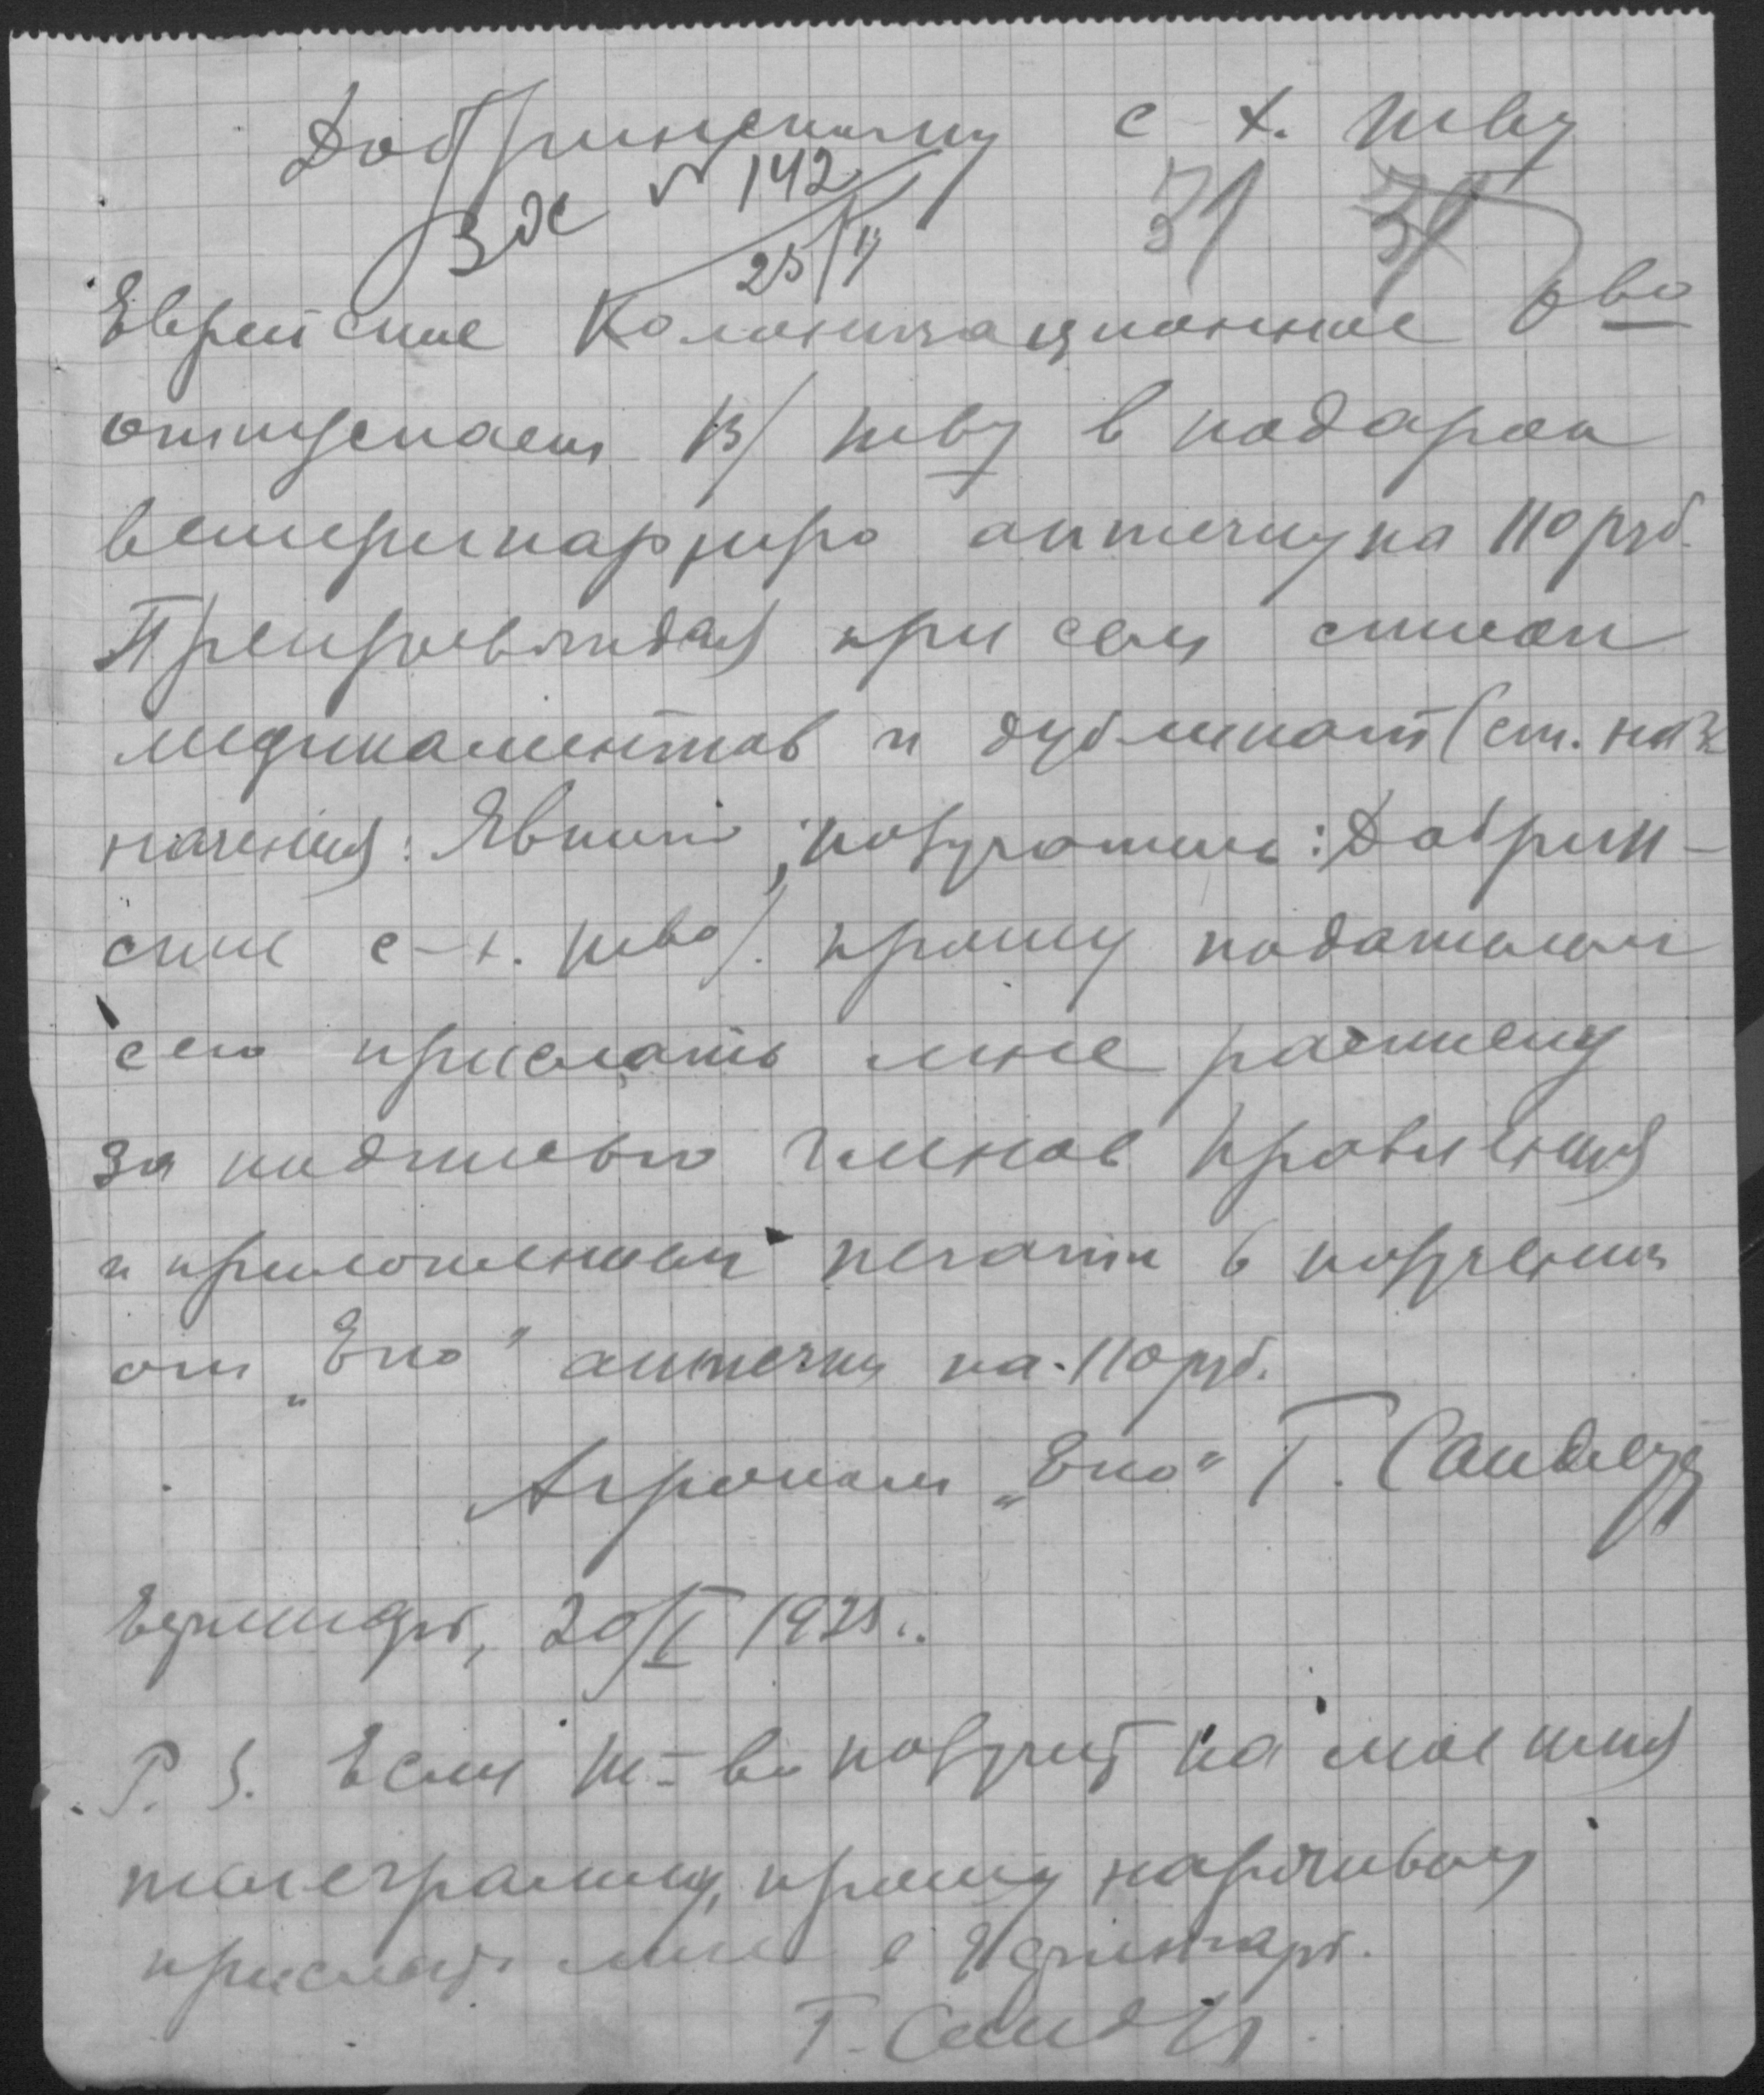 Добринскому с-х. тву
Вх √ 142
25/V 31 31
Еврейское Колонизационное О-во
отпускает В/ тву в подарок
ветеринарную аптечку на 110 руб.
Препровождая при сем список
медикаментов и дубликат (ст. наз
начения: Явкино; получатель: Добрин-
ское с-х. тво). прошу подателем
сего прислать мне расписку
за подписью членов правления
и приложением печати в получении
от „Еко" аптечки на 110 руб.
Агроном „Еко" Г.
20/V 1925 г.
P. S. Если т-во получит на мое имя
телеграмму, прошу нарочным
прислать мне в
Г.